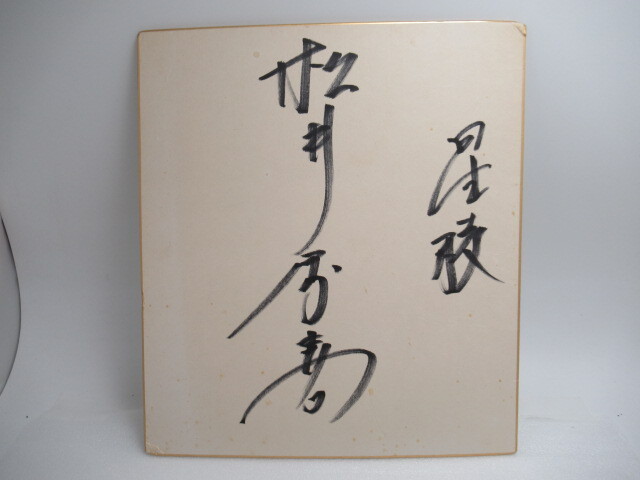 星稜
松井秀喜